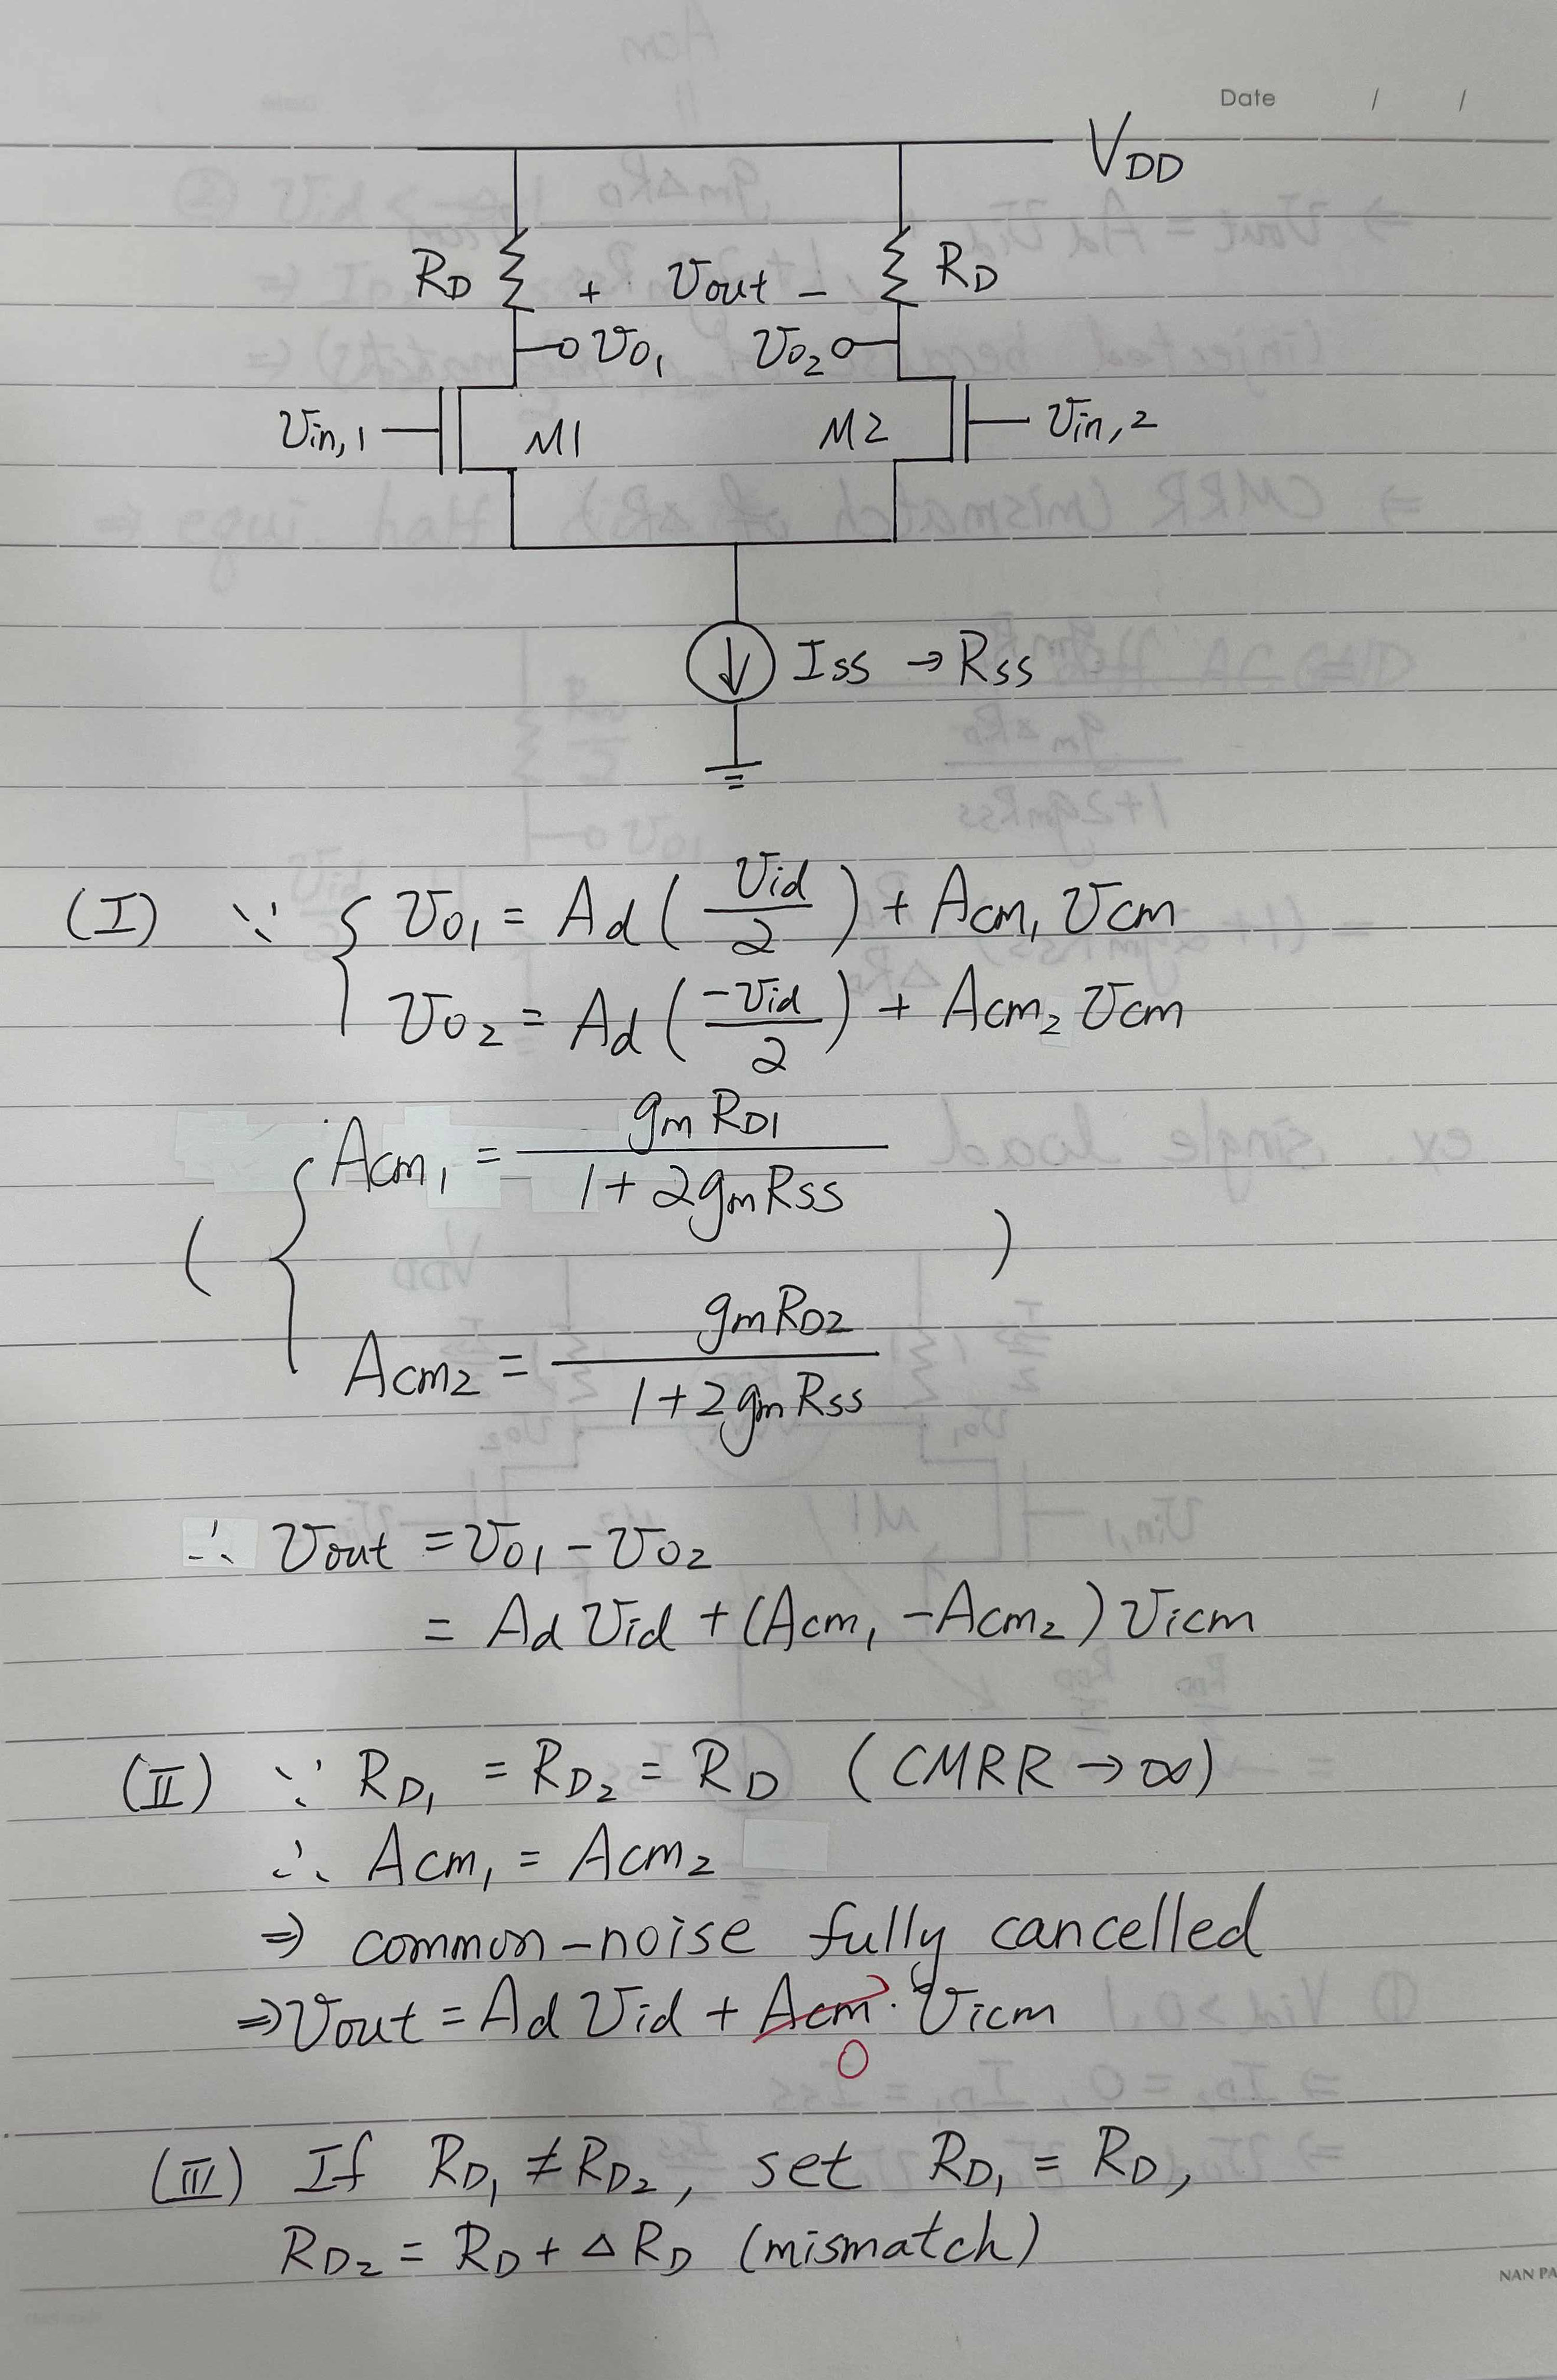 Date / /
VDD
RD + Vout - RD
Vo1 Vo2
Vin,1 M1 M2 Vin,2
Iss → Rss
(I) ∵ { Vo1 = Ad ( Vid / 2 ) + Acm1 Vcm
Vo2 = Ad ( -Vid / 2 ) + Acm2 Vcm
( { Acm1 = gm RD1 / 1+2gmRss
Acm2 = gmRD2 / 1+2gmRss )
∴ Vout = Vo1 - Vo2
= Ad Vid + (Acm1 - Acm2) Vicm
(II) ∵ RD1 = RD2 = RD (CMRR → ∞)
∴ Acm1 = Acm2
⇒ common-noise fully cancelled
⇒ Vout = Ad Vid + Acm · Vicm
0
(III) If RD1 ≠ RD2, set RD1 = RD,
RD2 = RD + △RD (mismatch)
NAN PA